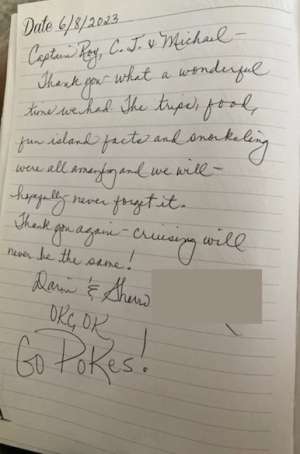 Date 6/8/2023
Captain Roy, C. J. & Michael -
Thank you - what a wonderful
time we had. The trips, food,
fun island facts and snorkeling
were all amazing and we will -
hopefully never forget it.
Thank you again - cruising will
never be the same!
Darin & Sherri
OKC, OK
Go Pokes!